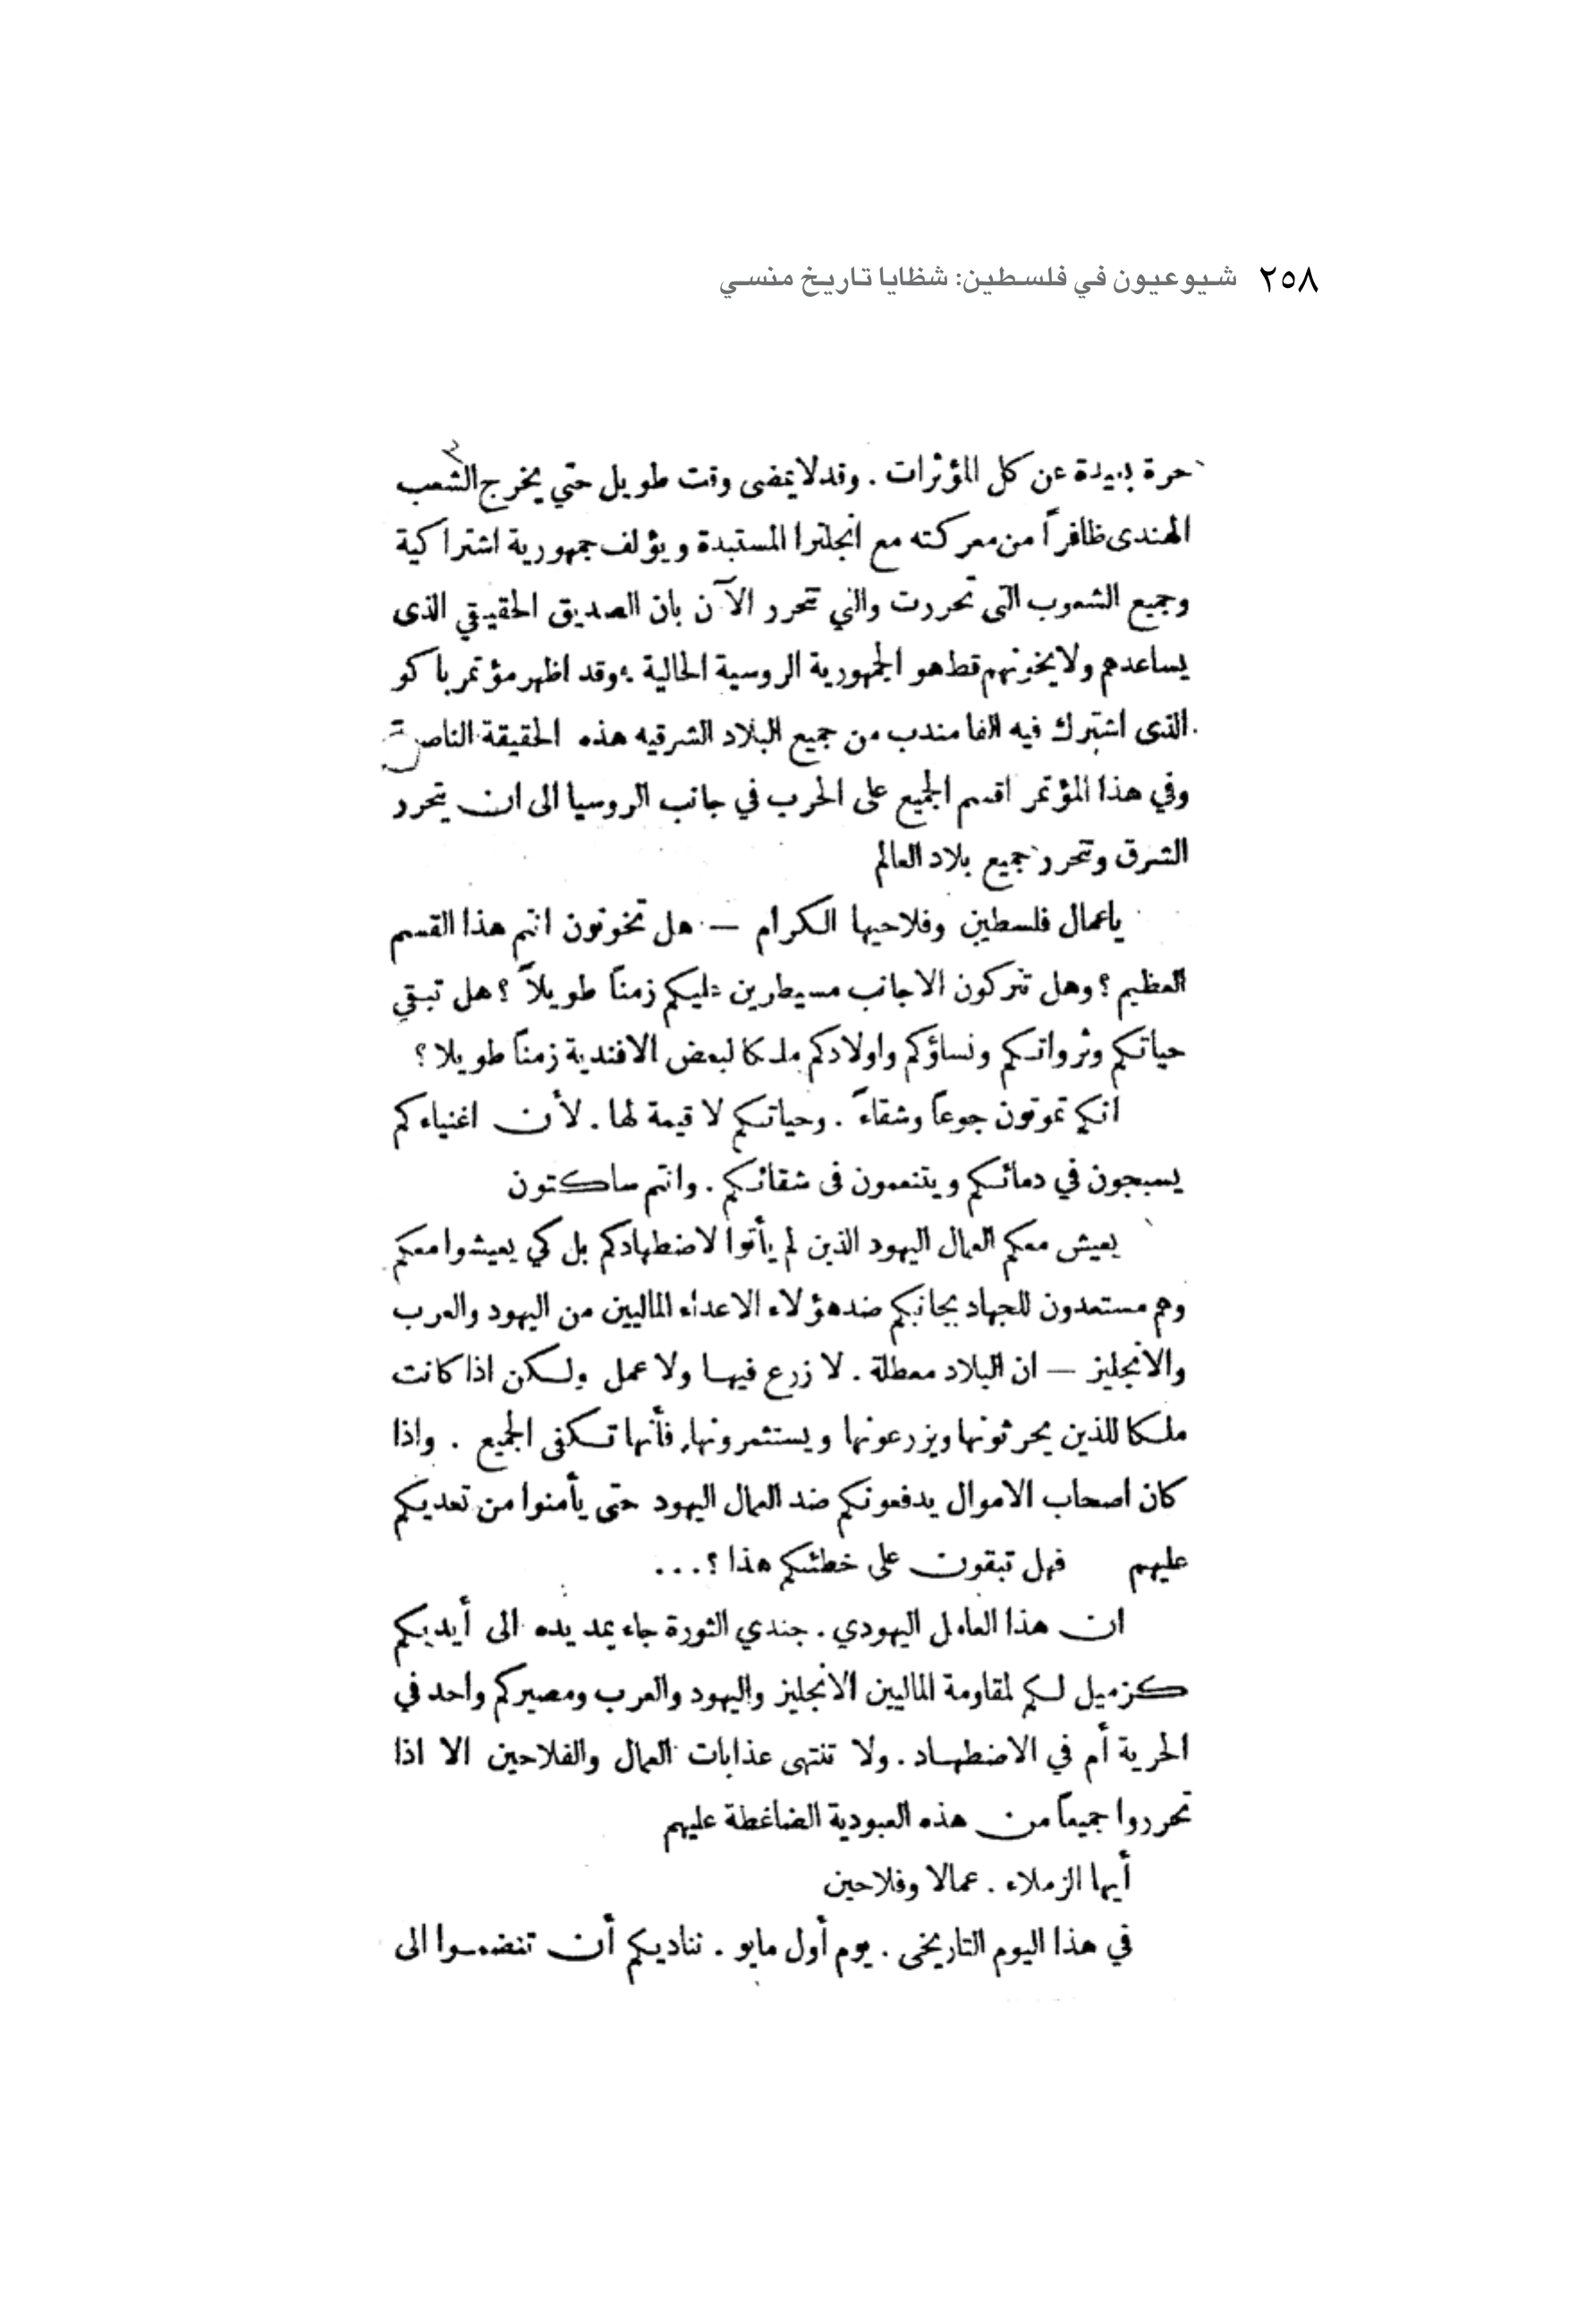 ٢٥٨ شيوعيون في فلسطين: شظايا تاريخ منسي
حرة بعيدة عن كل المؤثرات . وقد لا يمضى وقت طويل حتي يخرج الشعب
الهندى ظافراً من معركته مع انجلترا المستبدة ويؤلف جمهورية اشتراكية
وجميع الشعوب التى تحررت والتي تتحرر الآن بان الصديق الحقيقي الذى
يساعدهم ولا يخونهم قط هو الجمهورية الروسية الحالية ، وقد اظهر مؤتمر باكو
الذى اشترك فيه الفا مندب من جميع البلاد الشرقيه هذه الحقيقة الناصعة
وفي هذا المؤتمر اقسم الجميع على الحرب في جانب الروسيا الى ان يتحرر
الشرق وتتحرر جميع بلاد العالم
ياعمال فلسطين وفلاحيها الكرام — هل تخونون انتم هذا القسم
العظيم ؟ وهل تتركون الاجانب مسيطرين عليكم زمناً طويلاً ؟ هل تبقي
حياتكم وثرواتكم ونساؤكم واولادكم ملكا لبعض الافندية زمناً طويلا ؟
انكم تموتون جوعاً وشقاءً . وحياتكم لا قيمة لها . لأن اغنياءكم
يسبحون في دمائكم ويتنعمون فى شقائكم . وانتم ساكتون
يعيش معكم العمال اليهود الذين لم يأتوا لاضطهادكم بل كي يعيشوا معكم
وهم مستعدون للجهاد بجانبكم ضد هؤلاء الاعداء الماليين من اليهود والعرب
والانجليز — ان البلاد معطلة . لا زرع فيها ولا عمل ولكن اذا كانت
ملكا للذين يحرثونها ويزرعونها ويستثمرونها, فأنها تكفى الجميع . واذا
كان اصحاب الاموال يدفعونكم ضد العمال اليهود حتى يأمنوا من تعديكم
عليهم فهل تبقون على خطئكم هذا ؟ ...
ان هذا العامل اليهودي . جندي الثورة جاء يمد يده الى أيديكم
كزميل لكم لمقاومة الماليين الانجليز واليهود والعرب ومصيركم واحد في
الحرية أم في الاضطهاد . ولا تنتهى عذابات العمال والفلاحين الا اذا
تحرروا جميعاً من هذه العبودية الضاغطة عليهم
أيها الزملاء . عمالا وفلاحين
في هذا اليوم التاريخى . يوم أول مايو . نناديكم أن تنضموا الى